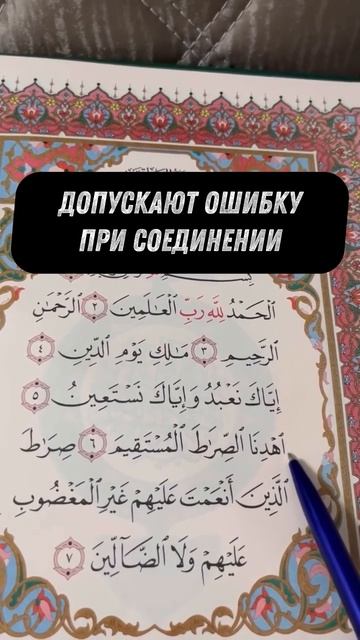 ДОПУСКАЮТ ОШИБКУ
ПРИ СОЕДИНЕНИИ
ٱلْحَمْدُ لِلَّهِ رَبِّ ٱلْعَٰلَمِينَ ٢ ٱلرَّحْمَٰنِ
ٱلرَّحِيمِ ٣ مَٰلِكِ يَوْمِ ٱلدِّينِ ٤
إِيَّاكَ نَعْبُدُ وَإِيَّاكَ نَسْتَعِينُ ٥
ٱهْدِنَا ٱلصِّرَٰطَ ٱلْمُسْتَقِيمَ ٦ صِرَٰطَ
ٱلَّذِينَ أَنْعَمْتَ عَلَيْهِمْ غَيْرِ ٱلْمَغْضُوبِ
عَلَيْهِمْ وَلَا ٱلضَّآلِّينَ ٧